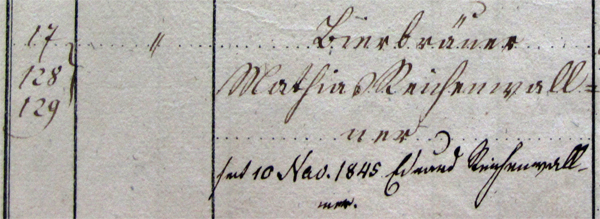 17 " Bierbräuer
128 Mathias Reichenwall=
129
ner
seit 10 Nov. 1845 Eduard Reichenwall-
ner.